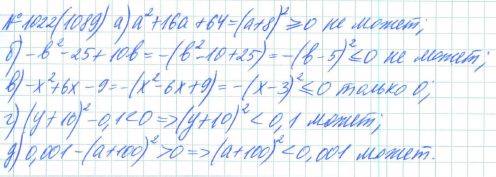 №1022(1089) а) a²+16a+64=(a+8)²⩾0 не может;
б) -b²-25+10b=-(b²-10+25)=-(b-5)²⩽0 не может;
в) -x²+6x-9=-(x²-6x+9)=-(x-3)²⩽0 только 0;
г) (y+10)²-0,1<0=>(y+10)²<0,1 может;
д) 0,001-(a+100)²>0=>(a+100)²<0,001 может.